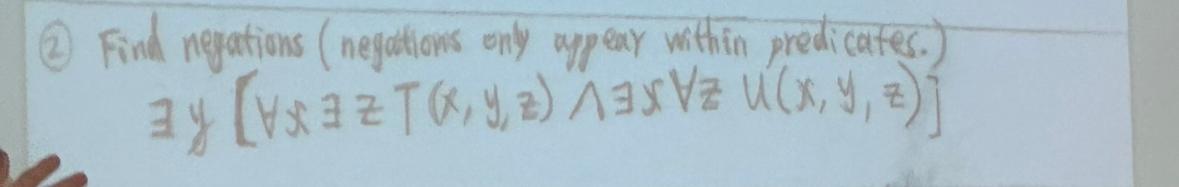 ② Find negations (negations only appear within predicates.)
∃y [∀x∃z T(x, y, z) ∧ ∃x∀z U(x, y, z)]